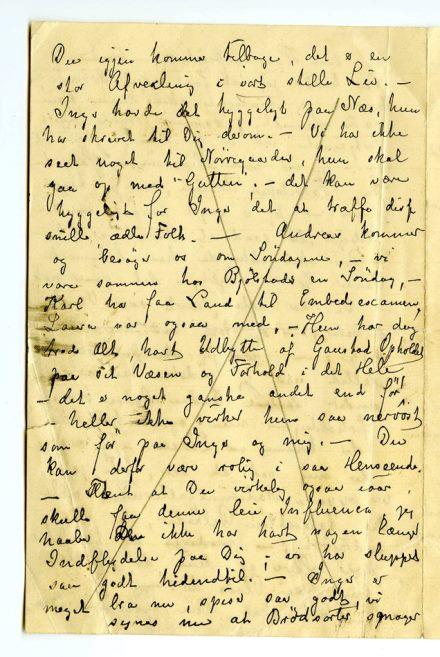 Du igjen kommer tilbage, det er en
stor Afvexling i vort stille Liv. –
Inga havde det hyggeligt paa Næs, hun
har skrevet til Dig derom. – Vi har ikke
seet noget til Nörregaards, hun skal
gaa op med "Gutten", – det kan være
hyggeligt for Inga det at træffe disse
snille, ædle Folk. – Andreas kommer
og besöger os om Söndagene, – vi
vare sammen hos Bjölstads en Söndag, –
Karl har faa Laud til Embedsexamen,
Laura var ogsaa med, – Hun har dog
trods alt, havt Udbytte af Gaustad Opholdet
paa sit Væsen og Forhold i det Hele
– det er noget ganske andet end för"!
– heller ikke virker hun saa nervöst
som "för" paa Inga og mig. – Du
kan derfor være rolig i saa Henseende.
– Tænk at Du virkelig ogsaa iaar,
skulle faa denne leie Influenca, jeg
haaber den ikke har havt nogen længer
Indflydelse paa Dig, – vi har sluppet
saa godt hidendtil. – Inga er
meget bra nu, spiser saa godt, vi
synes nu at Brödsorter smager